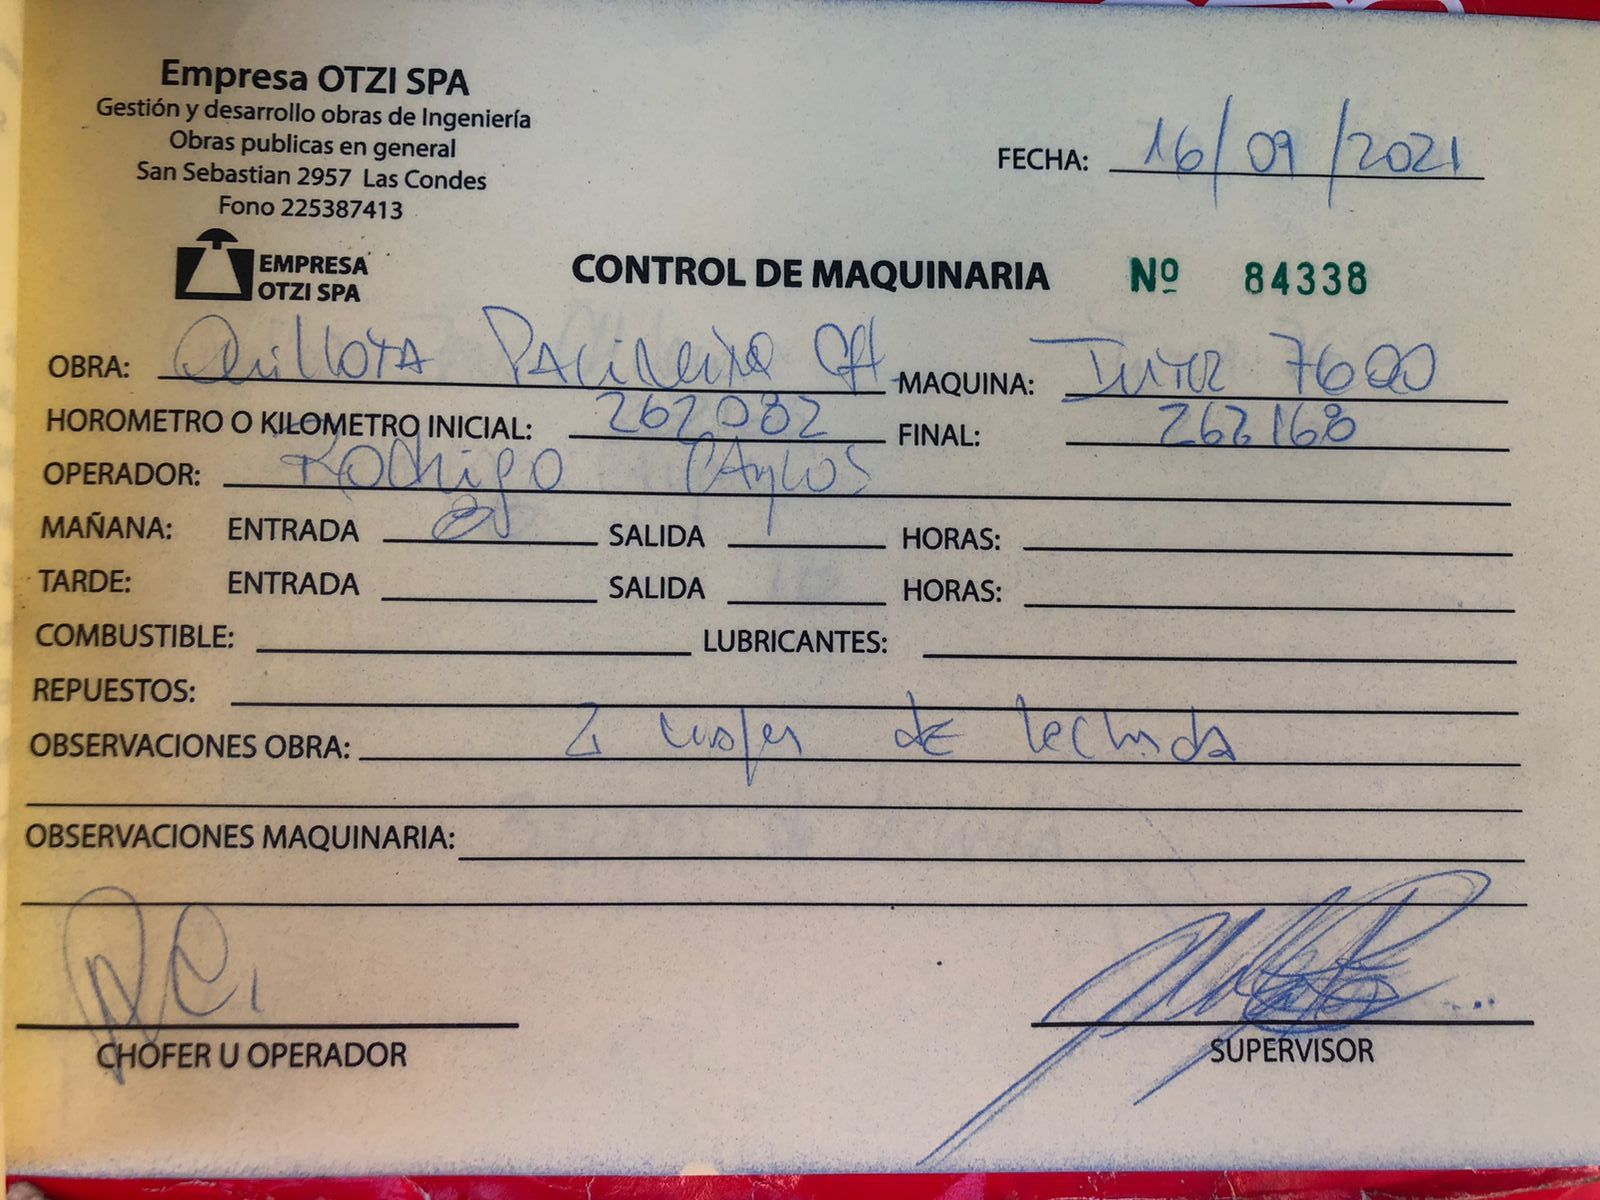 Empresa OTZI SPA
Gestión y desarrollo obras de Ingeniería
Obras publicas en general
San Sebastian 2957 Las Condes
Fono 225387413
FECHA: 16/09/2021
EMPRESA
OTZI SPA
CONTROL DE MAQUINARIA Nº 84338
OBRA: Quillota MAQUINA: Inter 7600
HOROMETRO O KILOMETRO INICIAL: 262082 FINAL: 262168
OPERADOR: Rodrigo
MAÑANA: ENTRADA SALIDA HORAS:
TARDE: ENTRADA SALIDA HORAS:
COMBUSTIBLE: LUBRICANTES:
REPUESTOS:
OBSERVACIONES OBRA: 2 de lechada
OBSERVACIONES MAQUINARIA:
CHOFER U OPERADOR SUPERVISOR